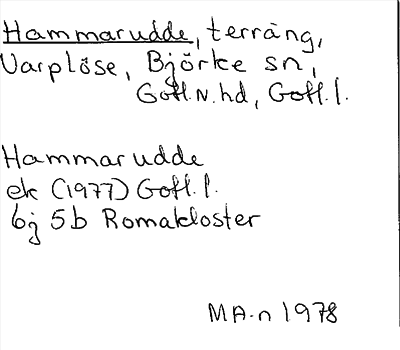 Hammarudde, terräng,
Varplöse, Björke sn,
Gotl.N.hd, Gotl.l.
Hammarudde
ek (1977) Gotl.l.
6j 5b Romakloster
MA-n 1978